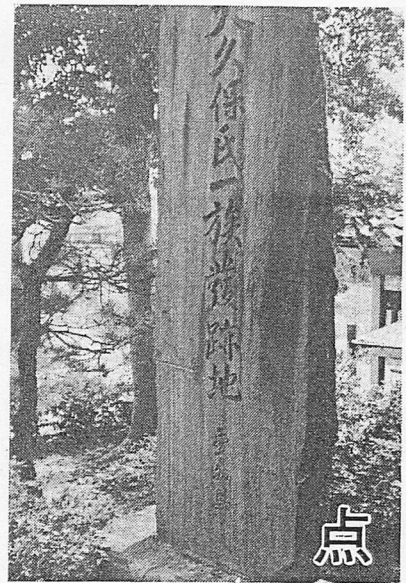 大久保氏一族發跡地
点